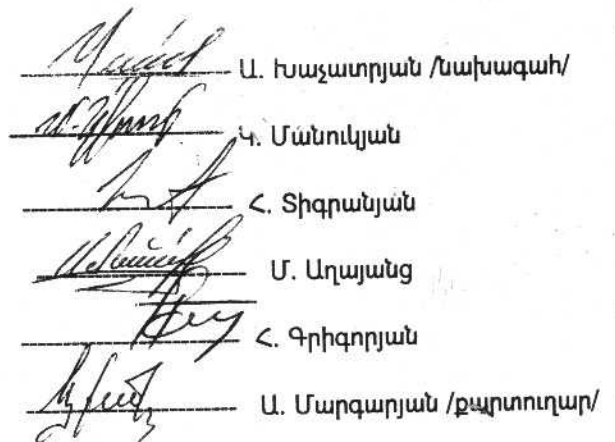 Ա. Խաչատրյան /նախագահ/
Կ. Մանուկյան
Հ. Տիգրանյան
Մ. Աղայանց
Հ. Գրիգորյան
Ա. Մարգարյան /քարտուղար/